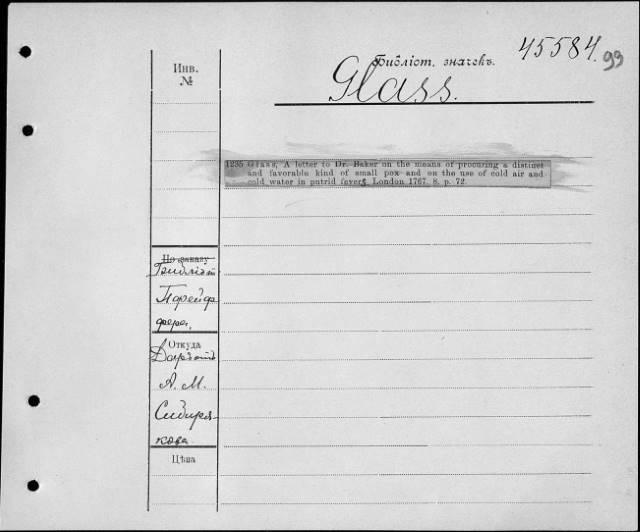 45584.
99
Библіот. значекъ.
Инв.
№
Glass.
1235 Glass, A letter to Dr. Baker on the means of procuring a distinct
and favorable kind of small pox and on the use of cold air and
cold water in putrid fevers. London 1767. 8. p. 72.
По заказу
Библіот
Порейф
фера.
Откуда
Даръ отъ
А. М.
Сибиря-
кова
Цѣна